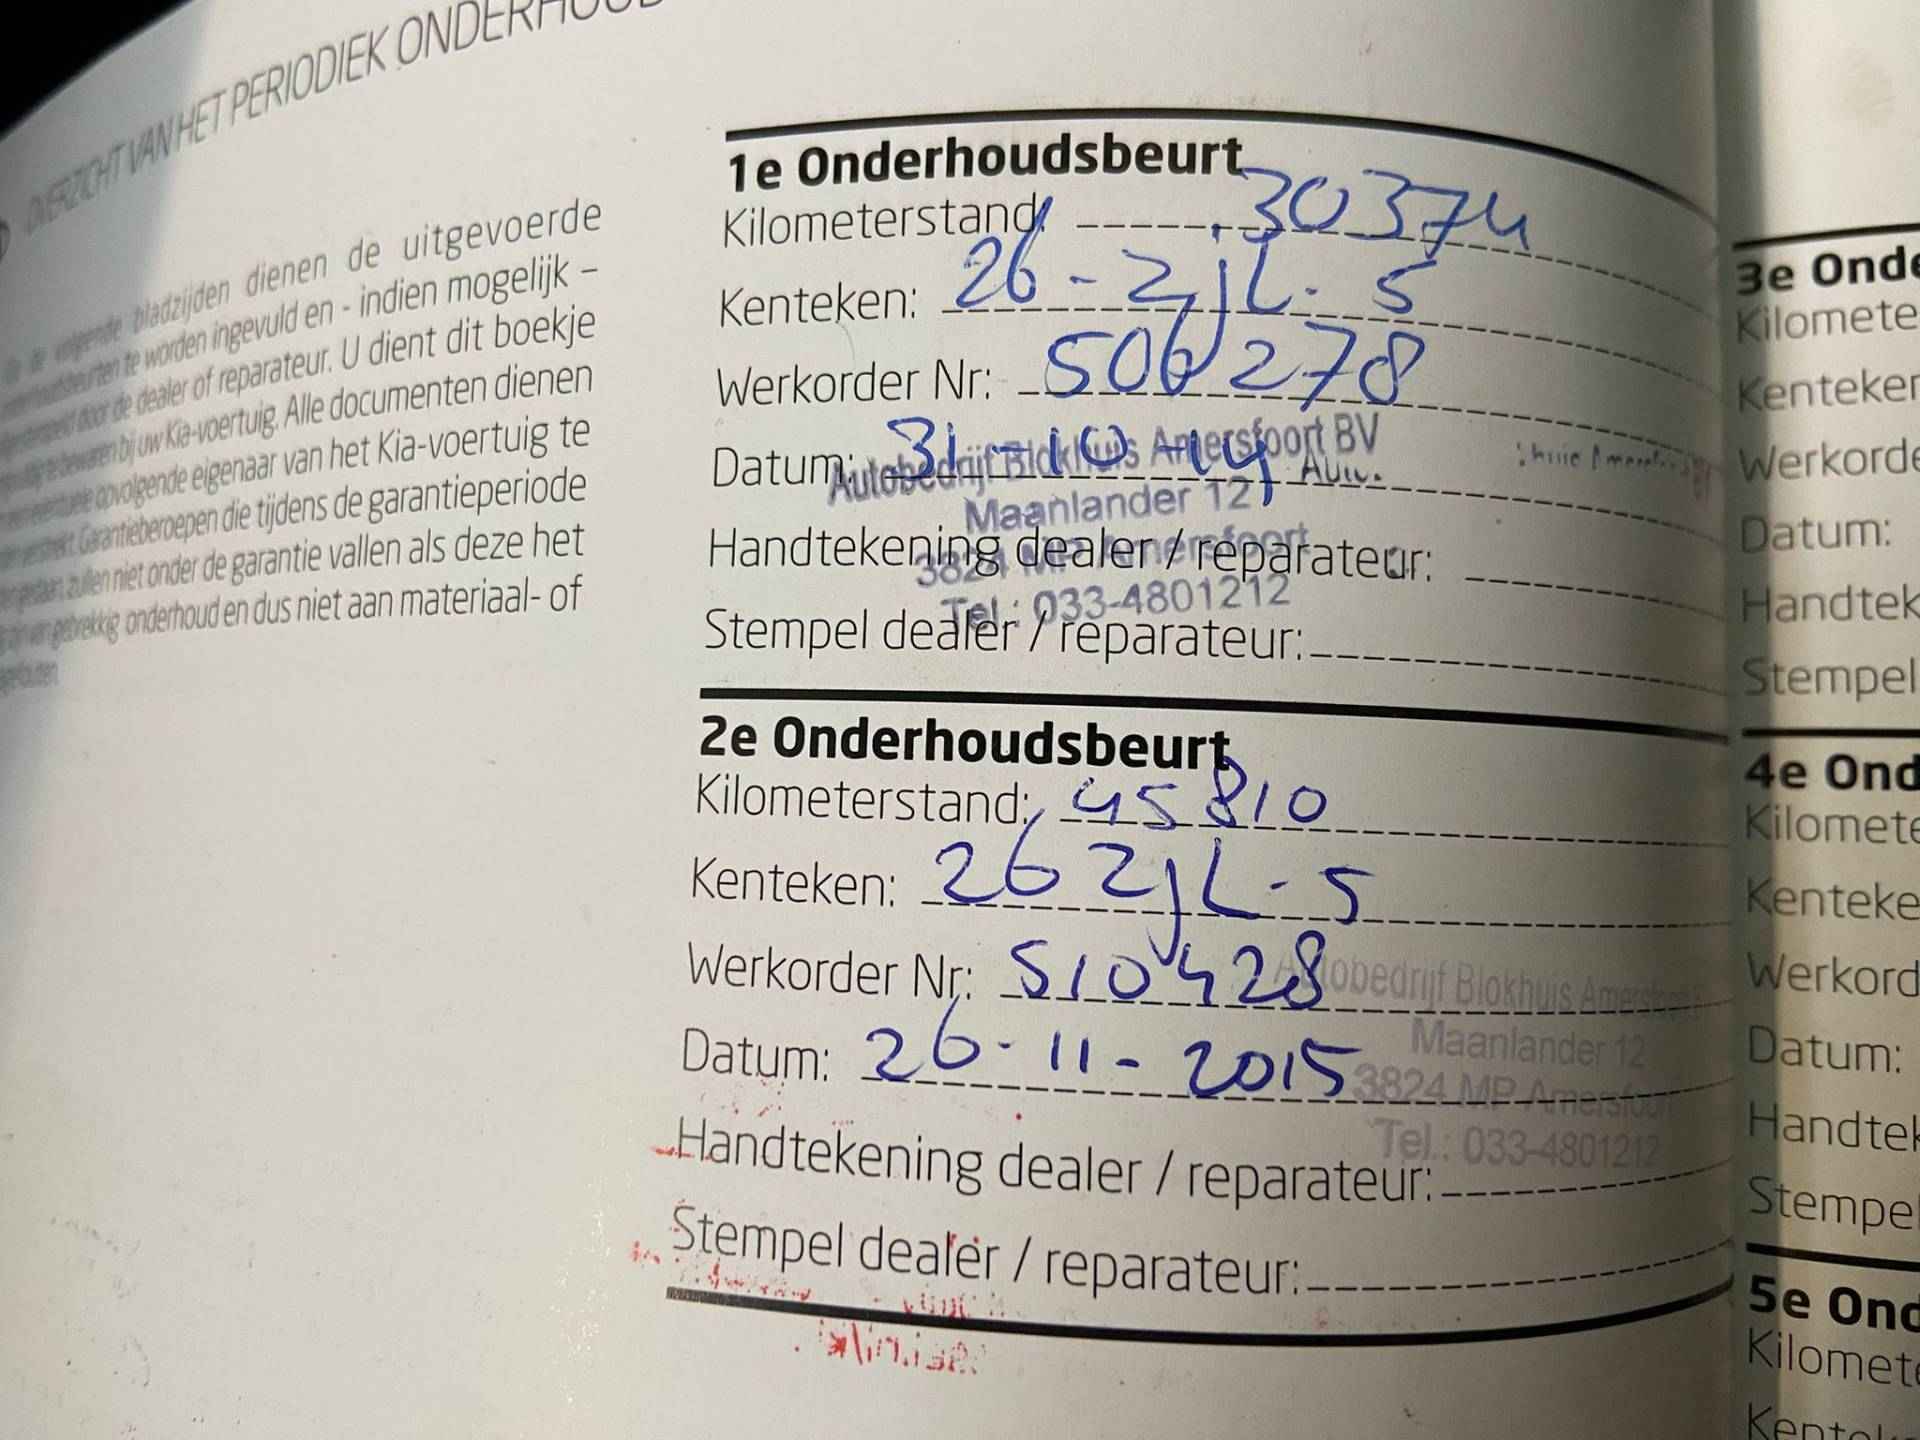 OVERZICHT VAN HET PERIODIEK ONDERHOUD
volgende bladzijden dienen de uitgevoerde
onderhoudsbeurten te worden ingevuld en - indien mogelijk –
door de dealer of reparateur. U dient dit boekje
te bewaren bij uw Kia-voertuig. Alle documenten dienen
opvolgende eigenaar van het Kia-voertuig te
verstrekt. Garantieberoepen die tijdens de garantieperiode
zullen niet onder de garantie vallen als deze het
van gebrekkig onderhoud en dus niet aan materiaal- of
1e Onderhoudsbeurt
Kilometerstand: 30374
Kenteken: 26-ZJL-5
Werkorder Nr: 506278
Datum: 31-10-14
Autobedrijf Blokhuis Amersfoort BV
Maanlander 12
Handtekening dealer / reparateur:
3824 MP Amersfoort
Tel.: 033-4801212
Stempel dealer / reparateur:
2e Onderhoudsbeurt
Kilometerstand: 45810
Kenteken: 26 ZJL-5
Werkorder Nr: 510428
Autobedrijf Blokhuis Amersfoort
Maanlander 12
Datum: 26-11-2015
3824 MP Amersfoort
Tel.: 033-4801212
Handtekening dealer / reparateur:
Stempel dealer / reparateur:
3e Onde
Kilomete
Kenteken
Werkorde
Datum:
Handtek
Stempel
4e Ond
Kilomete
Kenteke
Werkord
Datum:
Handtek
Stempel
5e Ond
Kilomete
Kentek